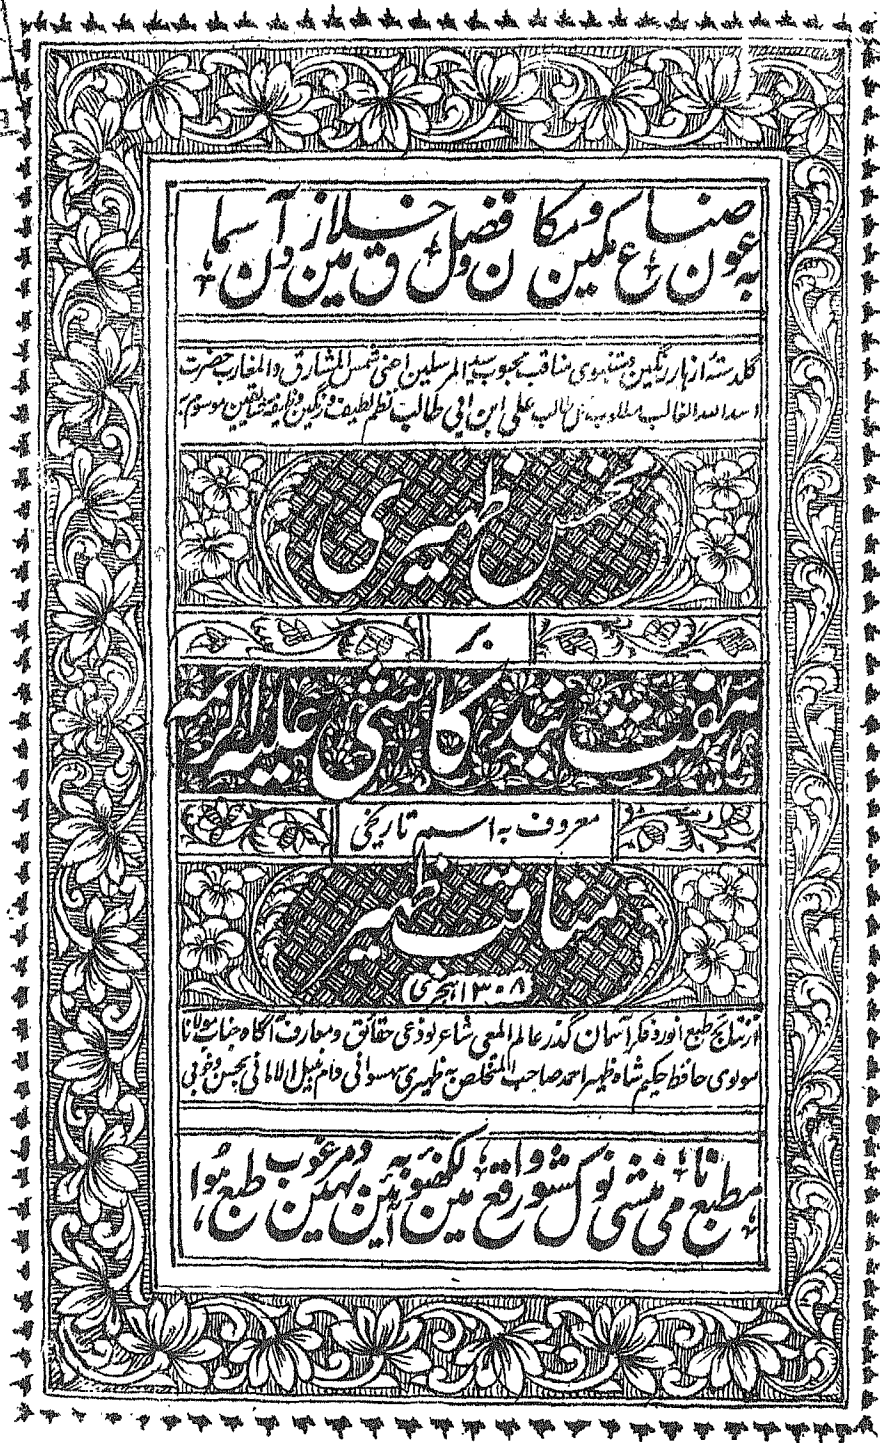 بعون صناع مکین و مکان و فضل خلاق زمین و آسمان
گلدستۂ ازہار رنگین دستنبوی مناقب محبوب سید المرسلین اعنی شمس المشارق والمغارب حضرت
اسد اللہ الغالب مطلوب کل طالب علی ابن ابی طالب نظم لطیف و رنگین وظیفۂ موسوم بہ
مخمس ظہیری
بر
ہفت بند کاشی علیہ الرحمہ
معروف بہ اسم تاریخی
مناقب ظہیر
۱۳۰۸ ہجری
از نتائج طبع انور و فکر آسمان گذر عالم المعی شاعر لوذعی حقائق و معارف آگاہ جناب مولانا
مولوی حافظ حکیم شاہ ظہیر احمد صاحب المتخلص بہ ظہیری سہسوانی دام فیض بحسن و خوبی
مطبع نامی منشی نولکشور واقع لکھنؤ میں بہ آئین بہین و مرغوب طبع ہوا